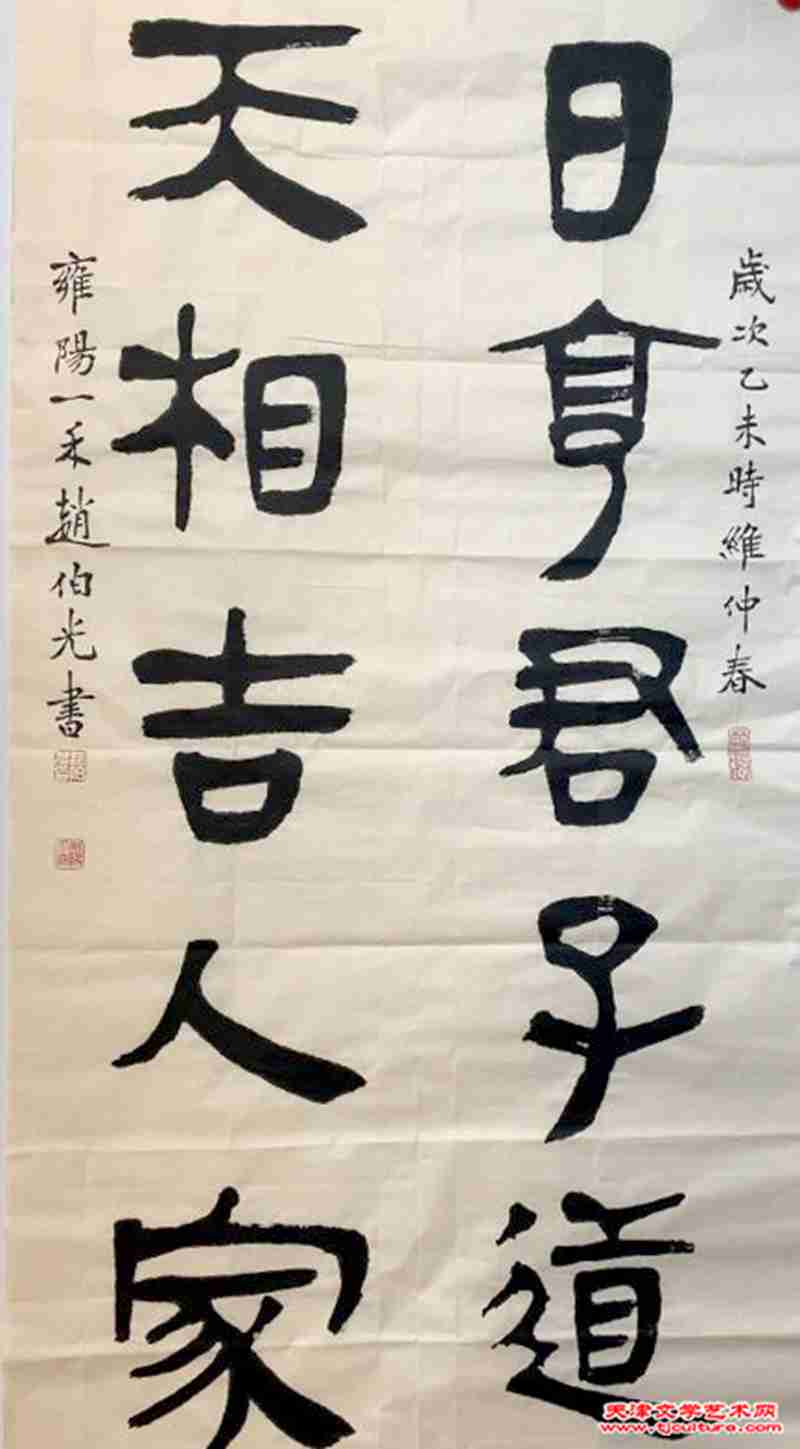 歲次乙未時維仲春
日亨君子道
天相吉人家
雍陽一禾趙伯光書
天津文学艺术网
www.tjcultura.com